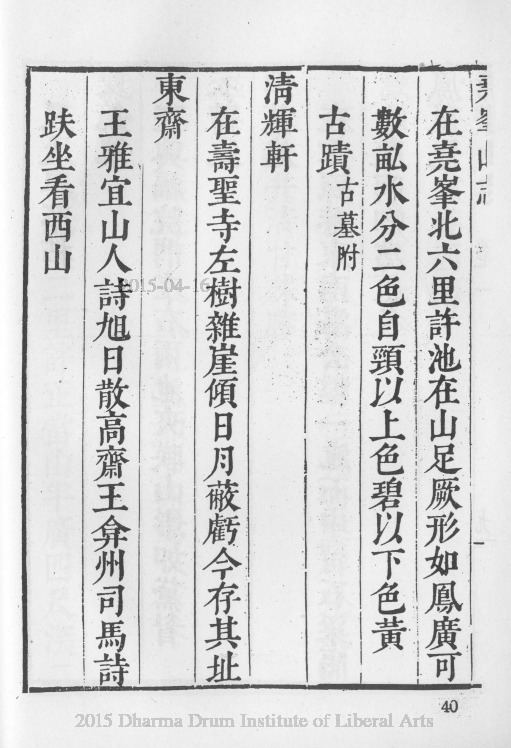 堯峯山志
在堯峯北六里許池在山足厥形如鳳廣可
數畝水分二色自頸以上色碧以下色黃
古蹟古墓附
清輝軒
在壽聖寺左樹雜崖傾日月蔽虧今存其址
東齋
王雅宜山人詩旭日散高齋王弇州司馬詩
趺坐看西山
2015-04-16
40
2015 Dharma Drum Institute of Liberal Arts